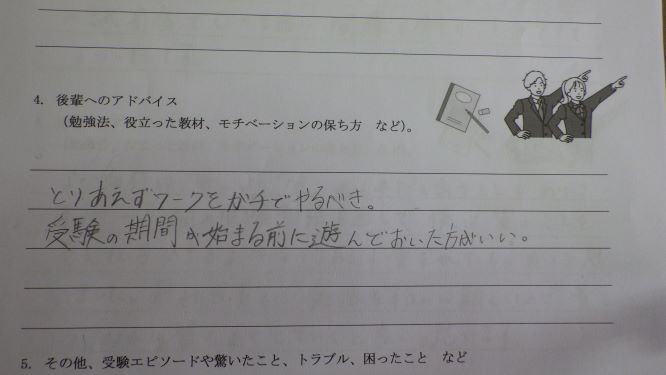 4. 後輩へのアドバイス
（勉強法、役立った教材、モチベーションの保ち方　など）。
とりあえずワークをガチでやるべき。
受験の期間が始まる前に遊んでおいた方がいい。
5. その他、受験エピソードや驚いたこと、トラブル、困ったこと　など